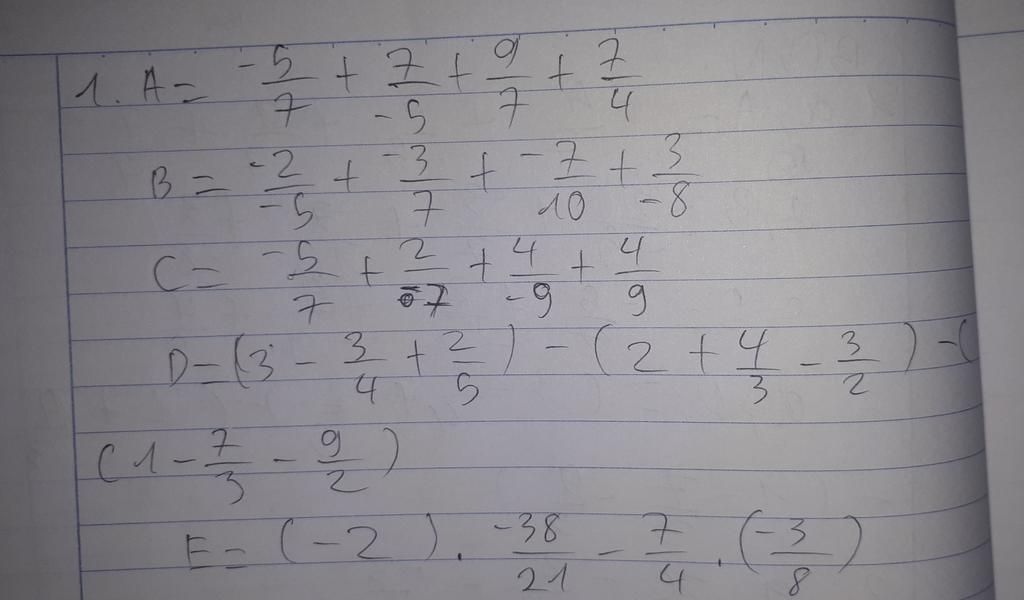 1. A = -5/7 + 7/-5 + 9/7 + 7/4
B = -2/-5 + -3/7 + -7/10 + 3/-8
C = -5/7 + 2/-7 + 4/-9 + 4/9
D = (3 - 3/4 + 2/5) - (2 + 4/3 - 3/2) - (
(1 - 7/3 - 9/2)
E = (-2) . -38/21 - 7/4 . (-3/8)